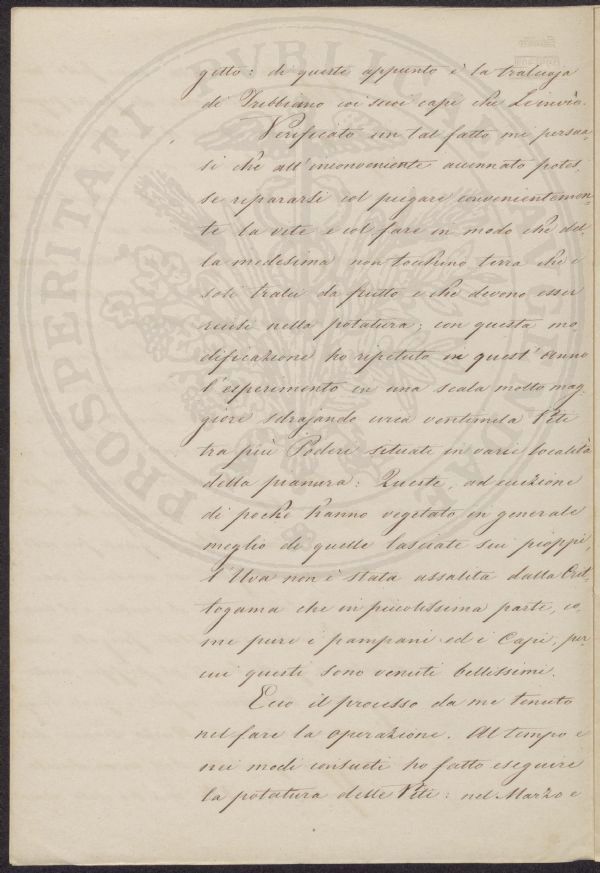 getto: di queste appunto è la tralciaja
di Trebbiano coi suoi capi che Le invio.
Verificato un tal fatto mi persua-
si che all'inconveniente accennato potes-
se ripararsi col piegare convenientemen-
te la vite e col fare in modo che del-
la medesima non tocchino terra che i
soli tralci da frutto e che devono esser
recisi nella potatura; con questa mo
dificazione ho ripetuto in quest'anno
l'esperimento in una scala molto mag-
giore sdrajando circa ventimila Viti
tra più Poderi situate in varie località
della pianura: Queste, ad eccezione
di poche hanno vegetato in generale
meglio di quelle lasciate sui pioppi,
l'Uva non è stata assalita dalla Crit-
togama che in piccolissima parte, co-
me pure i pampani ed i Capi, per
cui questi sono venuti bellissimi.
Ecco il processo da me tenuto
nel fare la operazione. Al tempo e
nei modi consueti ho fatto eseguire
la potatura delle Viti: nel Marzo e
PROSPERITATI PUBLICAE